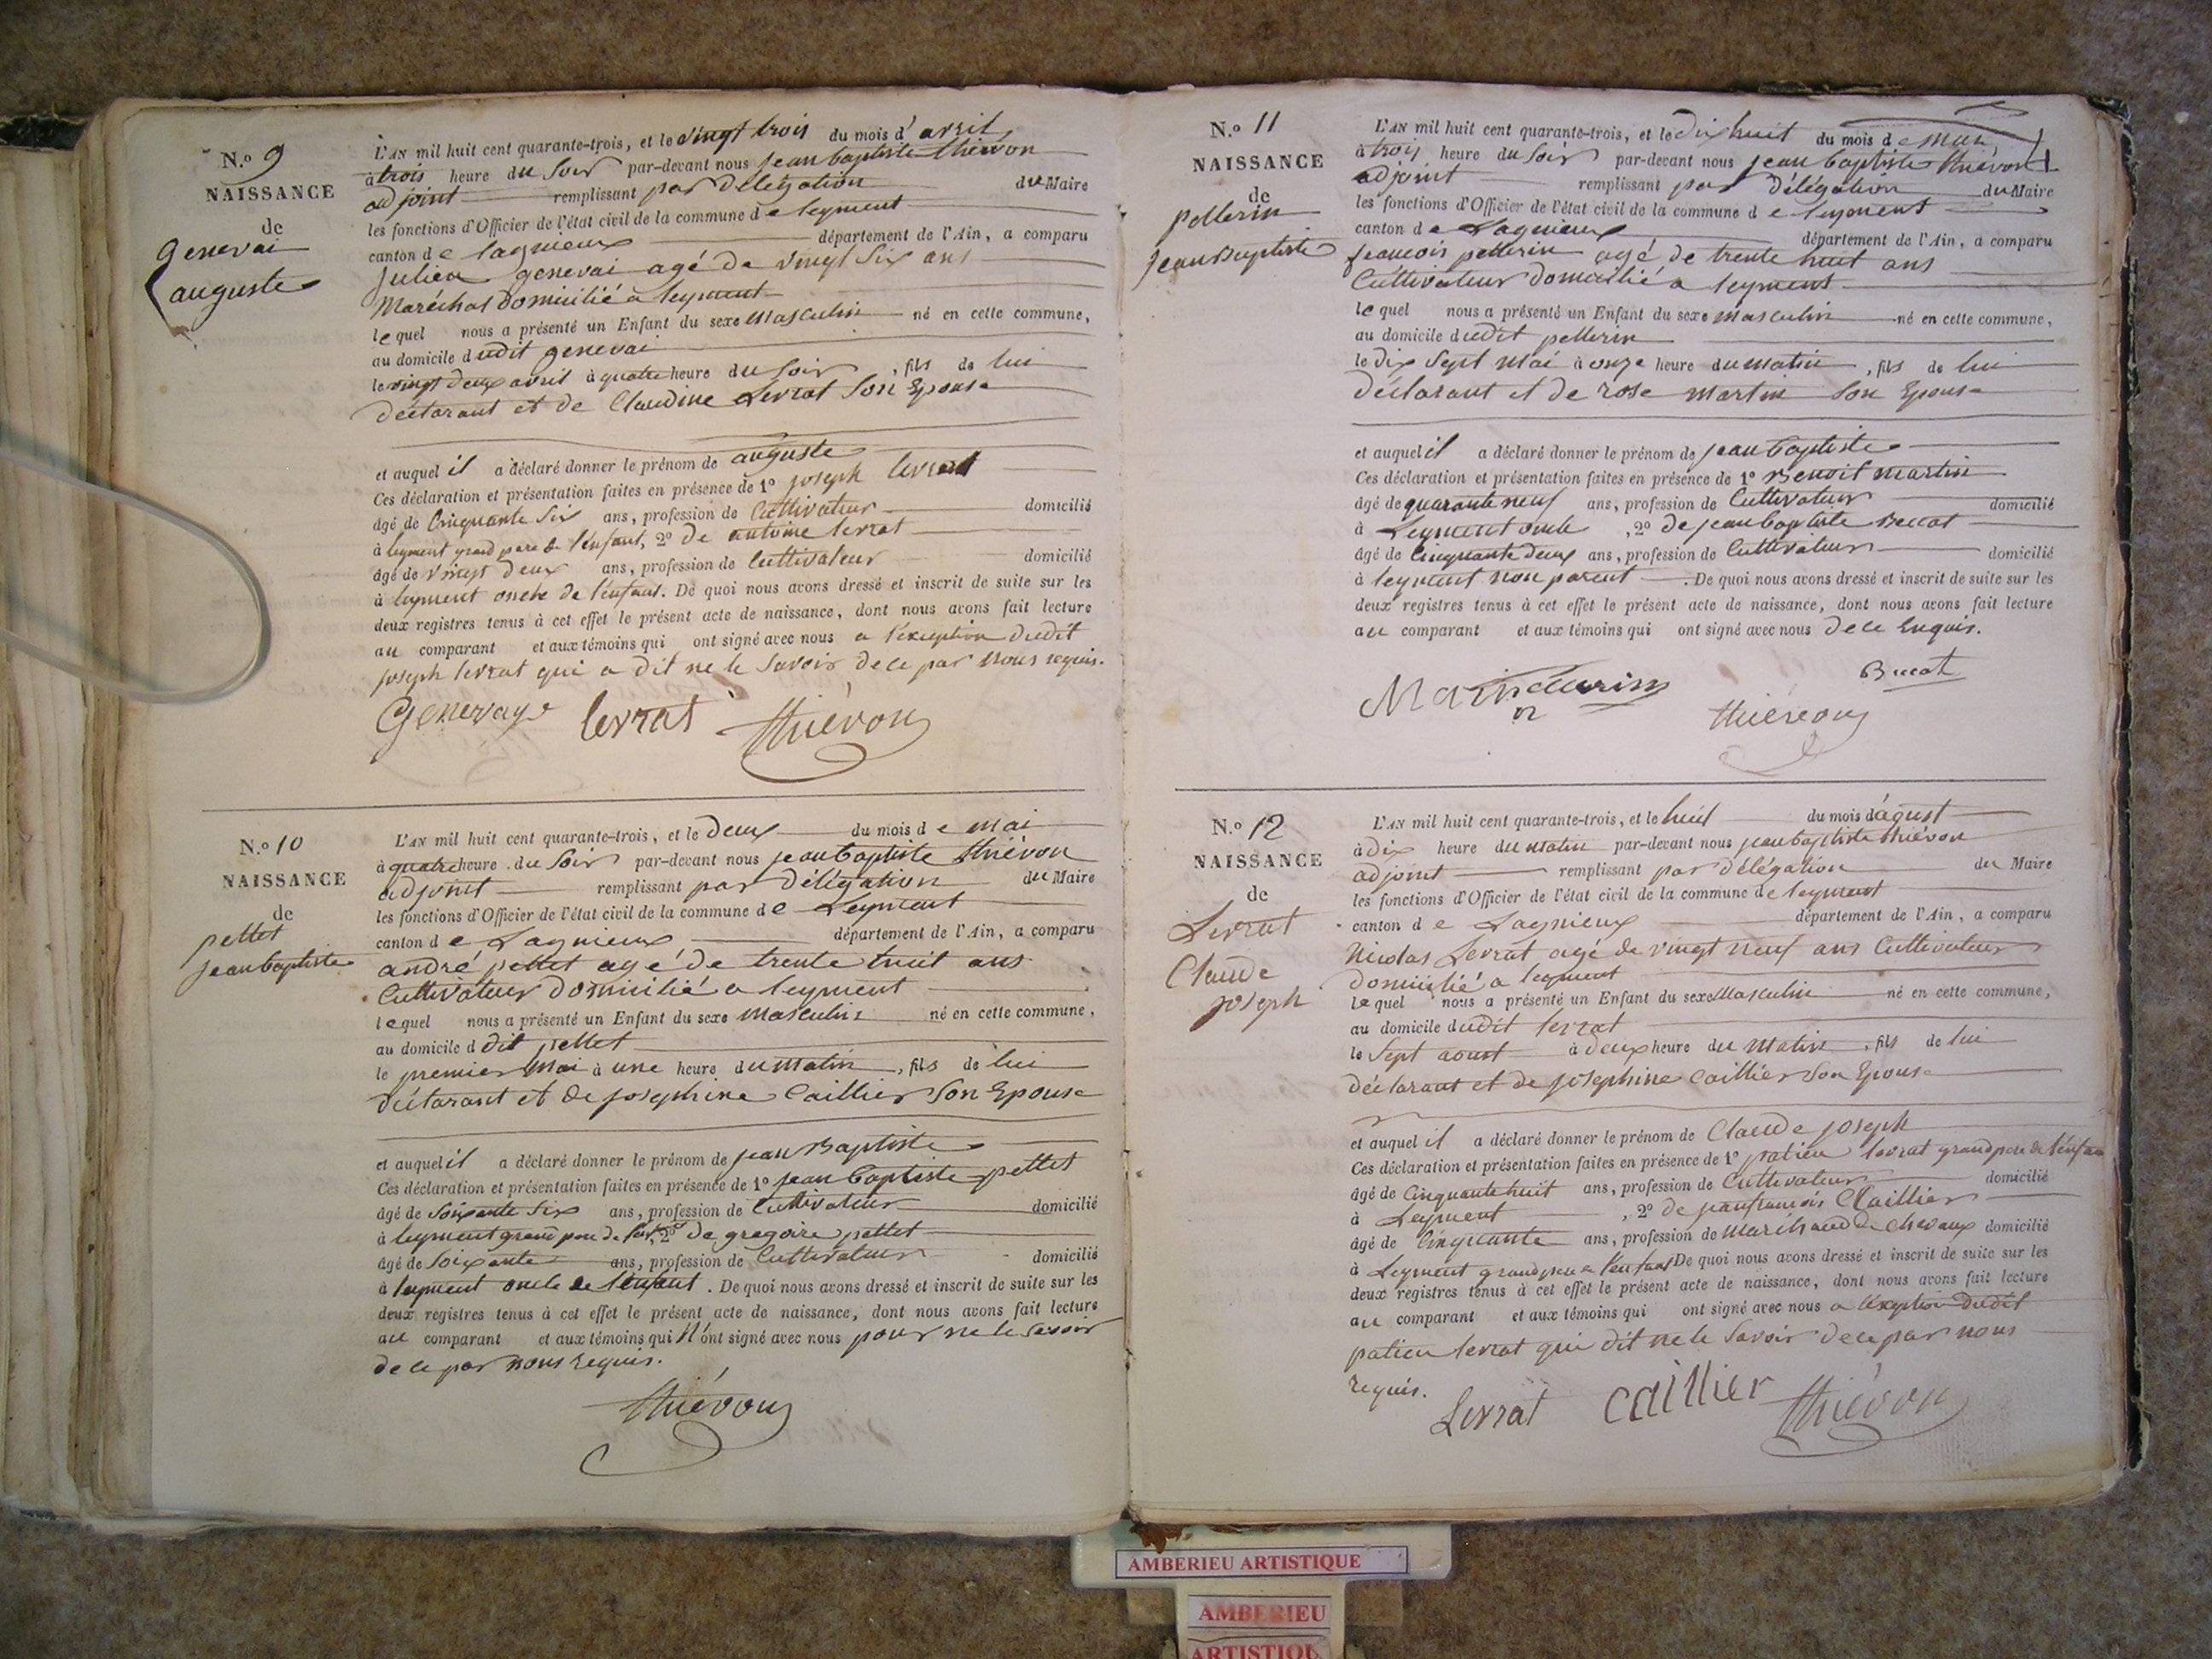 N.º 9
NAISSANCE
de
genevai
auguste
L'AN mil huit cent quarante-trois, et le vingt trois du mois d'avril
à trois heure du soir par-devant nous jean baptiste thiévon
adjoint remplissant par délégation du Maire
les fonctions d'Officier de l'état civil de la commune de leyment
canton de lagnieux département de l'Ain, a comparu
julien genevai agé de vingt six ans
Maréchal domicilié a leyment
lequel nous a présenté un Enfant du sexe masculin né en cette commune,
au domicile dudit genevai
le vingt deux avril à quatre heure du soir, fils de lui
déclarant et de Claudine Levrat son Epouse
et auquel il a déclaré donner le prénom de auguste
Ces déclaration et présentation faites en présence de 1º joseph levrat
âgé de Cinquante six ans, profession de Cultivateur domicilié
à leyment grand pere de l'enfant, 2º de antoine levrat
âgé de vingt deux ans, profession de Cultivateur domicilié
à leyment oncle de l'enfant. De quoi nous avons dressé et inscrit de suite sur les
deux registres tenus à cet effet le présent acte de naissance, dont nous avons fait lecture
au comparant et aux témoins qui ont signé avec nous a l'exception dudit
joseph levrat qui a dit ne le savoir de ce par nous requis.
Genevaye levrat thiévon
N.º 10
NAISSANCE
de
pettet
jean baptiste
L'AN mil huit cent quarante-trois, et le deux du mois de mai
à quatre heure du soir par-devant nous jean baptiste thiévon
adjoint remplissant par délégation du Maire
les fonctions d'Officier de l'état civil de la commune de Leyment
canton de Lagnieux département de l'Ain, a comparu
andré pettet agé de trente huit ans
Cultivateur domicilié a leyment
lequel nous a présenté un Enfant du sexe masculin né en cette commune,
au domicile d dit pettet
le premier mai à une heure du matin, fils de lui
déclarant et de josephine Caillier son Epouse
et auquel il a déclaré donner le prénom de jean Baptiste
Ces déclaration et présentation faites en présence de 1º jean baptiste pettet
âgé de soixante six ans, profession de Cultivateur domicilié
à leyment grand pere de 2º de gregoire pettet
âgé de soixante ans, profession de Cultivateur domicilié
à leyment oncle de l'enfant. De quoi nous avons dressé et inscrit de suite sur les
deux registres tenus à cet effet le présent acte de naissance, dont nous avons fait lecture
au comparant et aux témoins qui n'ont signé avec nous pour ne le savoir
de ce par nous requis.
thiévon
N.º 11
NAISSANCE
de
pellerin
jean Baptiste
L'AN mil huit cent quarante-trois, et le dix huit du mois de mai
à trois heure du soir par-devant nous jean baptiste thiévon
adjoint remplissant par délégation du Maire
les fonctions d'Officier de l'état civil de la commune de leyment
canton de Lagnieux département de l'Ain, a comparu
francois pellerin agé de trente huit ans
Cultivateur domicilié a leyment
lequel nous a présenté un Enfant du sexe masculin né en cette commune,
au domicile dudit pellerin
le dix sept mai à onze heure du matin, fils de lui
déclarant et de rose martin son Epouse
et auquel il a déclaré donner le prénom de jean baptiste
Ces déclaration et présentation faites en présence de 1º Benoit martin
âgé de quarante neuf ans, profession de Cultivateur domicilié
à Leyment oncle, 2º de jean baptiste Buccat
âgé de Cinquante deux ans, profession de Cultivateur domicilié
à leyment non parent. De quoi nous avons dressé et inscrit de suite sur les
deux registres tenus à cet effet le présent acte de naissance, dont nous avons fait lecture
au comparant et aux témoins qui ont signé avec nous de ce Enquis.
Buccat
thiévon
N.º 12
NAISSANCE
de
Levrat
Claude
joseph
L'AN mil huit cent quarante-trois, et le huit du mois d'agust
à dix heure du matin par-devant nous jean baptiste thiévon
adjoint remplissant par délégation du Maire
les fonctions d'Officier de l'état civil de la commune de leyment
canton de Lagnieux département de l'Ain, a comparu
Nicolas Levrat agé de vingt neuf ans Cultivateur
domicilié a leyment
lequel nous a présenté un Enfant du sexe Masculin né en cette commune,
au domicile dudit levrat
le sept aoust à deux heure du matin, fils de lui
déclarant et de josephine Caillier son Epouse
et auquel il a déclaré donner le prénom de Claude joseph
Ces déclaration et présentation faites en présence de 1º patien levrat grand pere de l'enfan
âgé de Cinquante huit ans, profession de Cultivateur domicilié
à Leyment, 2º de jean francois Caillier
âgé de Cinquante ans, profession de Maréchaud de chevaux domicilié
à Leyment grand pere de l'enfant De quoi nous avons dressé et inscrit de suite sur les
deux registres tenus à cet effet le présent acte de naissance, dont nous avons fait lecture
au comparant et aux témoins qui ont signé avec nous a l'exeption dudit
patien levrat qui dit ne le savoir de ce par nous
requis.
Levrat Caillier thiévon
AMBERIEU ARTISTIQUE
AMBERIEU
ARTISTIQU